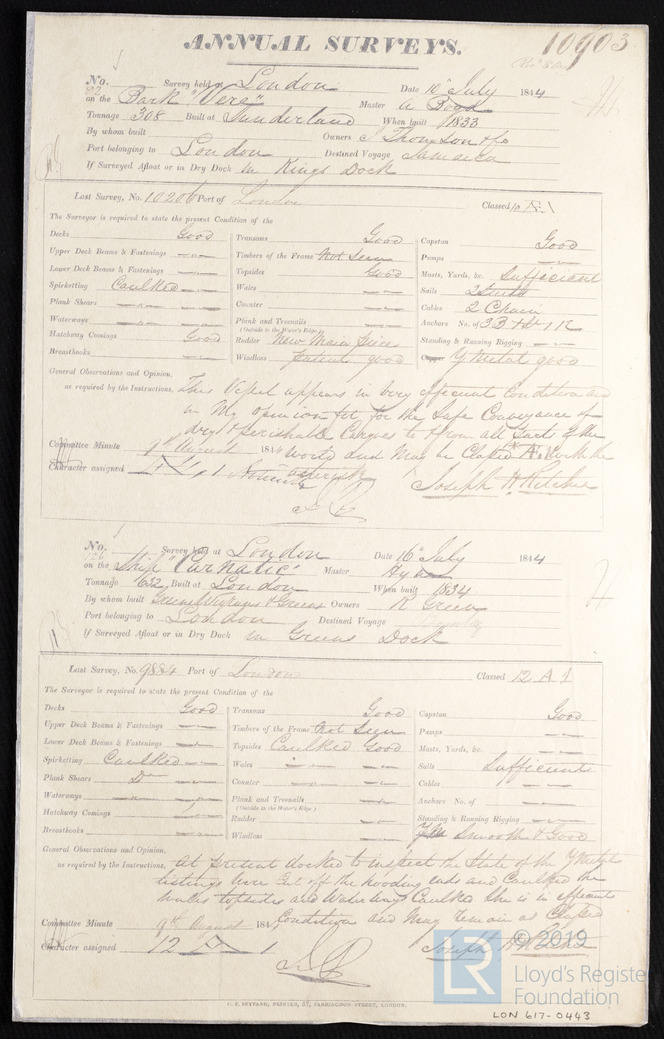 ANNUAL SURVEYS.
10903
No. Survey held at London Date 10th July 1844
on the Bark "Vere" Master A Boad
Tonnage 308 Built at Sunderland When built 1833
By whom built Owners Thomson & Co
Port belonging to London Destined Voyage Jamaica
If Surveyed Afloat or in Dry Dock in Kings Dock
Last Survey, No. 10206 Port of London Classed 10 A 1
The Surveyor is required to state the present Condition of the
Decks Good
Upper Deck Beams & Fastenings
Lower Deck Beams & Fastenings
Spirketting Caulked
Plank Shears
Waterways
Hatchway Comings Good
Breasthooks
Transoms Good
Timbers of the Frame Not Seen
Topsides Good
Wales
Counter
Plank and Treenails
(Outside to the Water's Edge)
Rudder New Main Piece
Windlass Patent good
Capstan Good
Pumps
Masts, Yards, &c. Sufficient
Sails 2 Suits
Cables 2 Chain
Anchors No. of 3 B
Standing & Running Rigging
Copper Y Metal good
General Observations and Opinion,
as required by the Instructions, This Vessel appears in very efficient Condition and
in My opinion fit for the Safe Conveyance of
dry & perishable Cargoes to & from all Parts of the
World and May be Classed A 1 with the
asterisk
Committee Minute 9th August 1844
Character assigned
Joseph H Ritchie
No. Survey held at London Date 16th July 1844
on the Ship "Carnatic" Master Hyde
Tonnage 632 Built at London When built 1834
By whom built Greens Wigrams & Greens Owners R Green
Port belonging to London Destined Voyage
If Surveyed Afloat or in Dry Dock in Greens Dock
Last Survey, No. 9884 Port of London Classed 12 A 1
The Surveyor is required to state the present Condition of the
Decks Good
Upper Deck Beams & Fastenings
Lower Deck Beams & Fastenings
Spirketting Caulked
Plank Shears Do
Waterways
Hatchway Comings
Breasthooks
Transoms Good
Timbers of the Frame Not Seen
Topsides Caulked Good
Wales
Counter
Plank and Treenails
(Outside to the Water's Edge)
Rudder
Windlass
Capstan Good
Pumps
Masts, Yards, &c.
Sails Sufficient
Cables
Anchors No. of
Standing & Running Rigging
Smooth & Good
General Observations and Opinion,
as required by the Instructions, At present docked to inspect the State of the Y Metal
listings were Cut off the hooding ends and Caulked the
Wales topsides and Waterways Caulked She is in efficient
Condition and May remain as Classed
Committee Minute 9th August 184
Character assigned 12 A 1
Joseph H Ritchie
© 2019
LR
Lloyd's Register
Foundation
LON 617-0443
C. F. SEYFANG, PRINTER, 57, FARRINGDON STREET, LONDON.